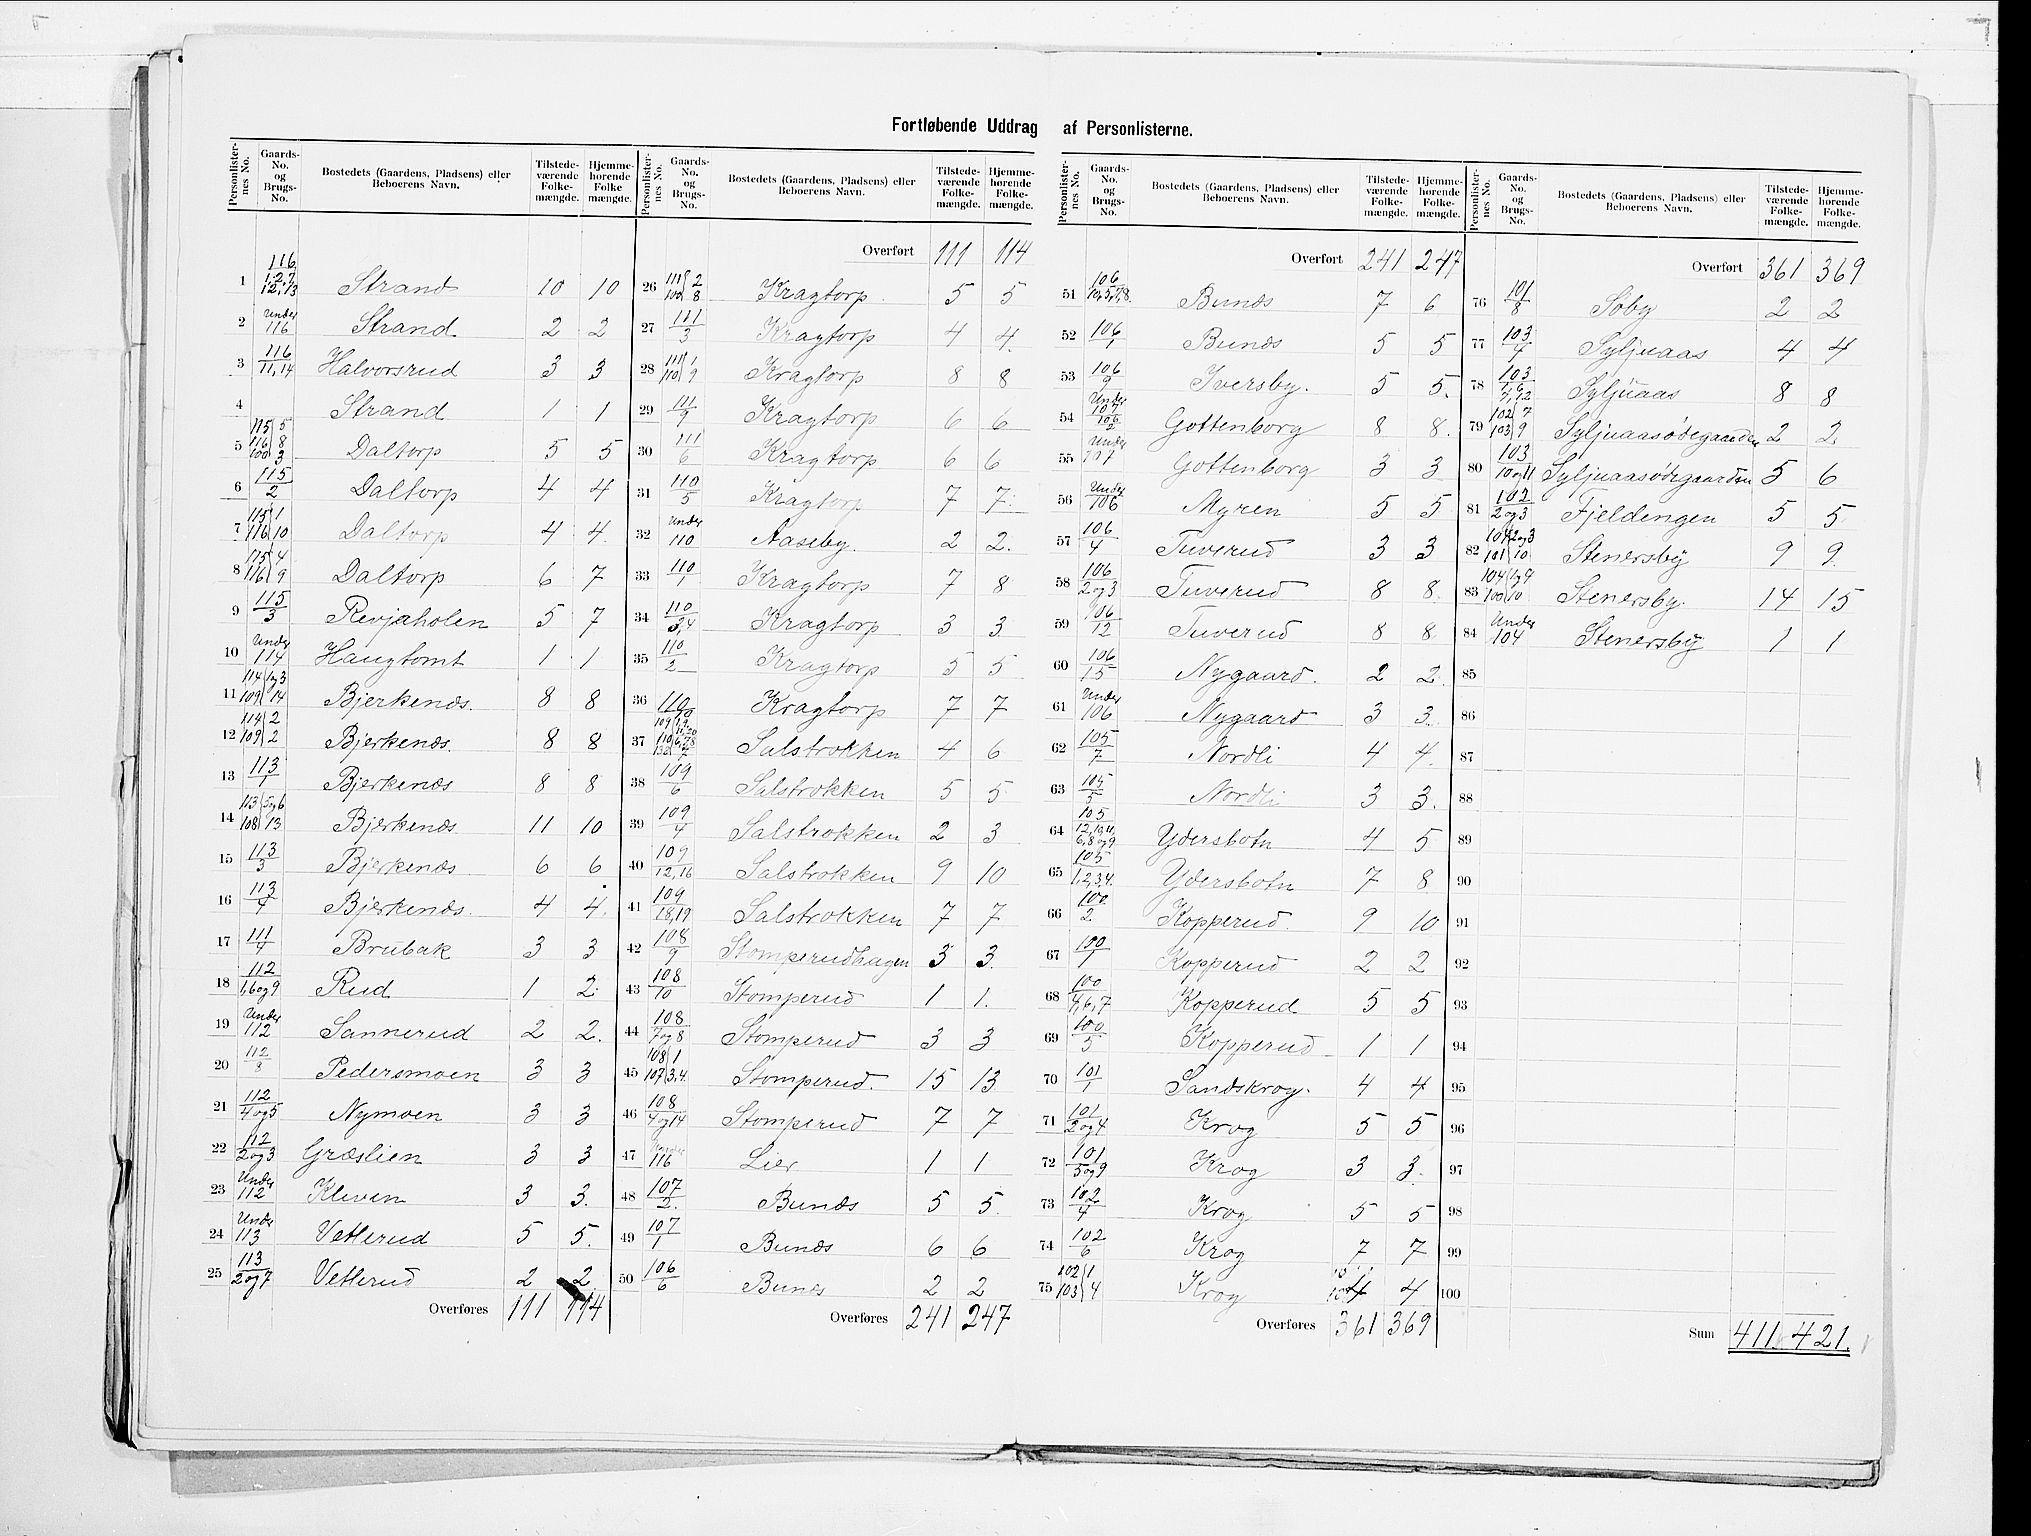 Fortløbende Uddrag af Personlisterne.
Personlisternes No. Gaards-No. og Brugs-No. Bostedets (Gaardens, Pladsens) eller Beboerens Navn. Tilstedeværende Folkemængde. Hjemmehørende Folkemængde.
1 116 1,2,7 12,13 Strand 10 10
2 Under 116 Strand 2 2
3 116 11,14 Halvorsrud 3 3
4 Strand 1 1
5 115 5 116 8 100 3 Daltorp 5 5
6 115 2 Daltorp 4 4
7 115 1 116 10 Daltorp 4 4
8 115 4 116 9 Daltorp 6 7
9 115 3 Revjaholen 5 7
10 Under 114 Haugtomt 1 1
11 114 1og3 109 14 Bjerkenæs. 8 8
12 114 2 109 2 Bjerkenæs. 8 8
13 113 1 Bjerkenæs 8 8
14 113 5og6 108 13 Bjerkenæs 11 10
15 113 3 Bjerkenæs 6 6
16 113 4 Bjerkenæs. 4 4.
17 111 4 Brubak 3 3
18 112 1,6og9 Rud 1 2.
19 Under 112 Sannerud 2 2.
20 112 8 Pedersmoen 3 3
21 112 4og5 Nymoen 3 3
22 112 2og3 Græslien 3 3
23 Under 112 Kleven 3 3.
24 Under 113 Vetterud 5 5.
25 113 2og7 Vetterud 2 2
Overføres 111 114
Personlisternes No. Gaards-No. og Brugs-No. Bostedets (Gaardens, Pladsens) eller Beboerens Navn. Tilstedeværende Folkemængde. Hjemmehørende Folkemængde.
Overført 111 114
26 111 2 100 8 Kragtorp 5 5
27 111 3 Kragtorp 4 4.
28 111 1 110 9 Kragtorp 8 8
29 111 7 Kragtorp 6 6
30 111 6 Kragtorp 6 6
31 110 5 Kragtorp 7 7.
32 Under 110 Aaseby. 2 2.
33 110 1 Kragtorp 7 8
34 110 3,4 Kragtorp 3 3
35 110 2 Kragtorp 5 5
36 110 Kragtorp 7 7
37 Salstrokken 4 6
38 109 6 Salstrokken 5 5
39 109 4 Salstrokken 2 3
40 109 12,16 Salstrokken 9 10
41 109 18,19 Salstrokken 7 7
42 108 9 Stomperudhagen 3 3.
43 108 10 Stomperud 1 1.
44 108 7og8 Stomperud 3 3
45 108 1 107 3,4. Stomperud. 15 13
46 108 4og14 Stomperud 7 7
47 Under 116 Lier 1 1
48 107 2. Bunæs 5 5.
49 107 1 Bunæs 6 6
50 106 6 Bunæs 2 2
Overføres 241 247
Personlisternes No. Gaards-No. og Brugs-No. Bostedets (Gaardens, Pladsens) eller Beboerens Navn. Tilstedeværende Folkemængde. Hjemmehørende Folkemængde.
Overført 241 247
51 106 10,5,7,8. Bunæs 7 6
52 106 1 Bunæs 5 5
53 106 9 Iversby. 5 5.
54 Under 107 106 2 Gottenborg 8 8.
55 Under 107 Gottenborg 3 3
56 Under 106 Myren 5 5
57 106 4 Tuverud 3 3
58 106 2og3 Tuverud 8 8.
59 106 12 Tuverud 8 8
60 106 15 Nygaard. 2 2.
61 Under 106 Nygaard 3 3.
62 105 7 Nordli 4 4.
63 105 5 Nordli 3 3.
64 105 12,10,11, 6,8og9 Ydersbotn 4 5
65 105 1,2,3,4. Ydersbotn 7 8
66 100 2 Kopperud. 9 10
67 100 1 Kopperud 2 2
68 100 4,6,7 Kopperud 5 5
69 100 5 Kopperud 1 1
70 101 1 Sandskrog. 4 4
71 101 2og4 Krog 5 5
72 101 5og9 Krog 3 3.
73 102 4 Krog 5 5
74 102 6 Krog 7 7
75 102 1 103 4 Krog 4 4
Overføres 361 369
Personlisternes No. Gaards-No. og Brugs-No. Bostedets (Gaardens, Pladsens) eller Beboerens Navn. Tilstedeværende Folkemængde. Hjemmehørende Folkemængde.
Overført 361 369
76 101 8 Søby 2 2
77 103 4 Syljuaas 4 4
78 103 Syljuaas 8 8
79 102 7 103 9 Syljuaasødegaarden 2 2.
80 103 10og11 Syljuaasødegaarden 5 6
81 102 2og3 Fjeldengen 5 5
82 104 2og3 101 10 Stenersby 9 9.
83 104 1og4 100 10 Stenersby. 14 15
84 Under 104 Stenersby 1 1
85
86
87
88
89
90
91
92
93
94
95
96
97
98
99
100
Sum 411 421.